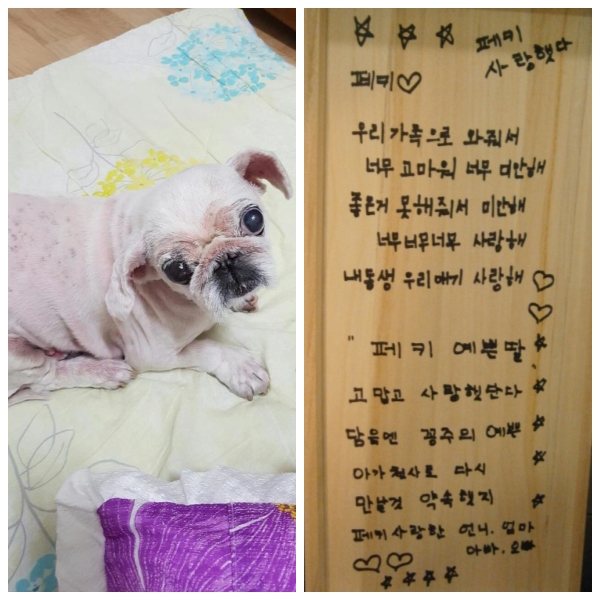 페키
사랑했다
페키♡
우리가족으로 와줘서
너무 고마워 너무 미안해
좋은거 못해줘서 미안해
너무너무너무 사랑해
내동생 우리애기 사랑해 ♡
♡
" 페키 예쁜딸 "
고맙고 사랑했단다
담음엔 공주의 예쁜
아가천사로 다시
만날것 약속했지
페키사랑한 언니. 엄마
아빠. 오빠